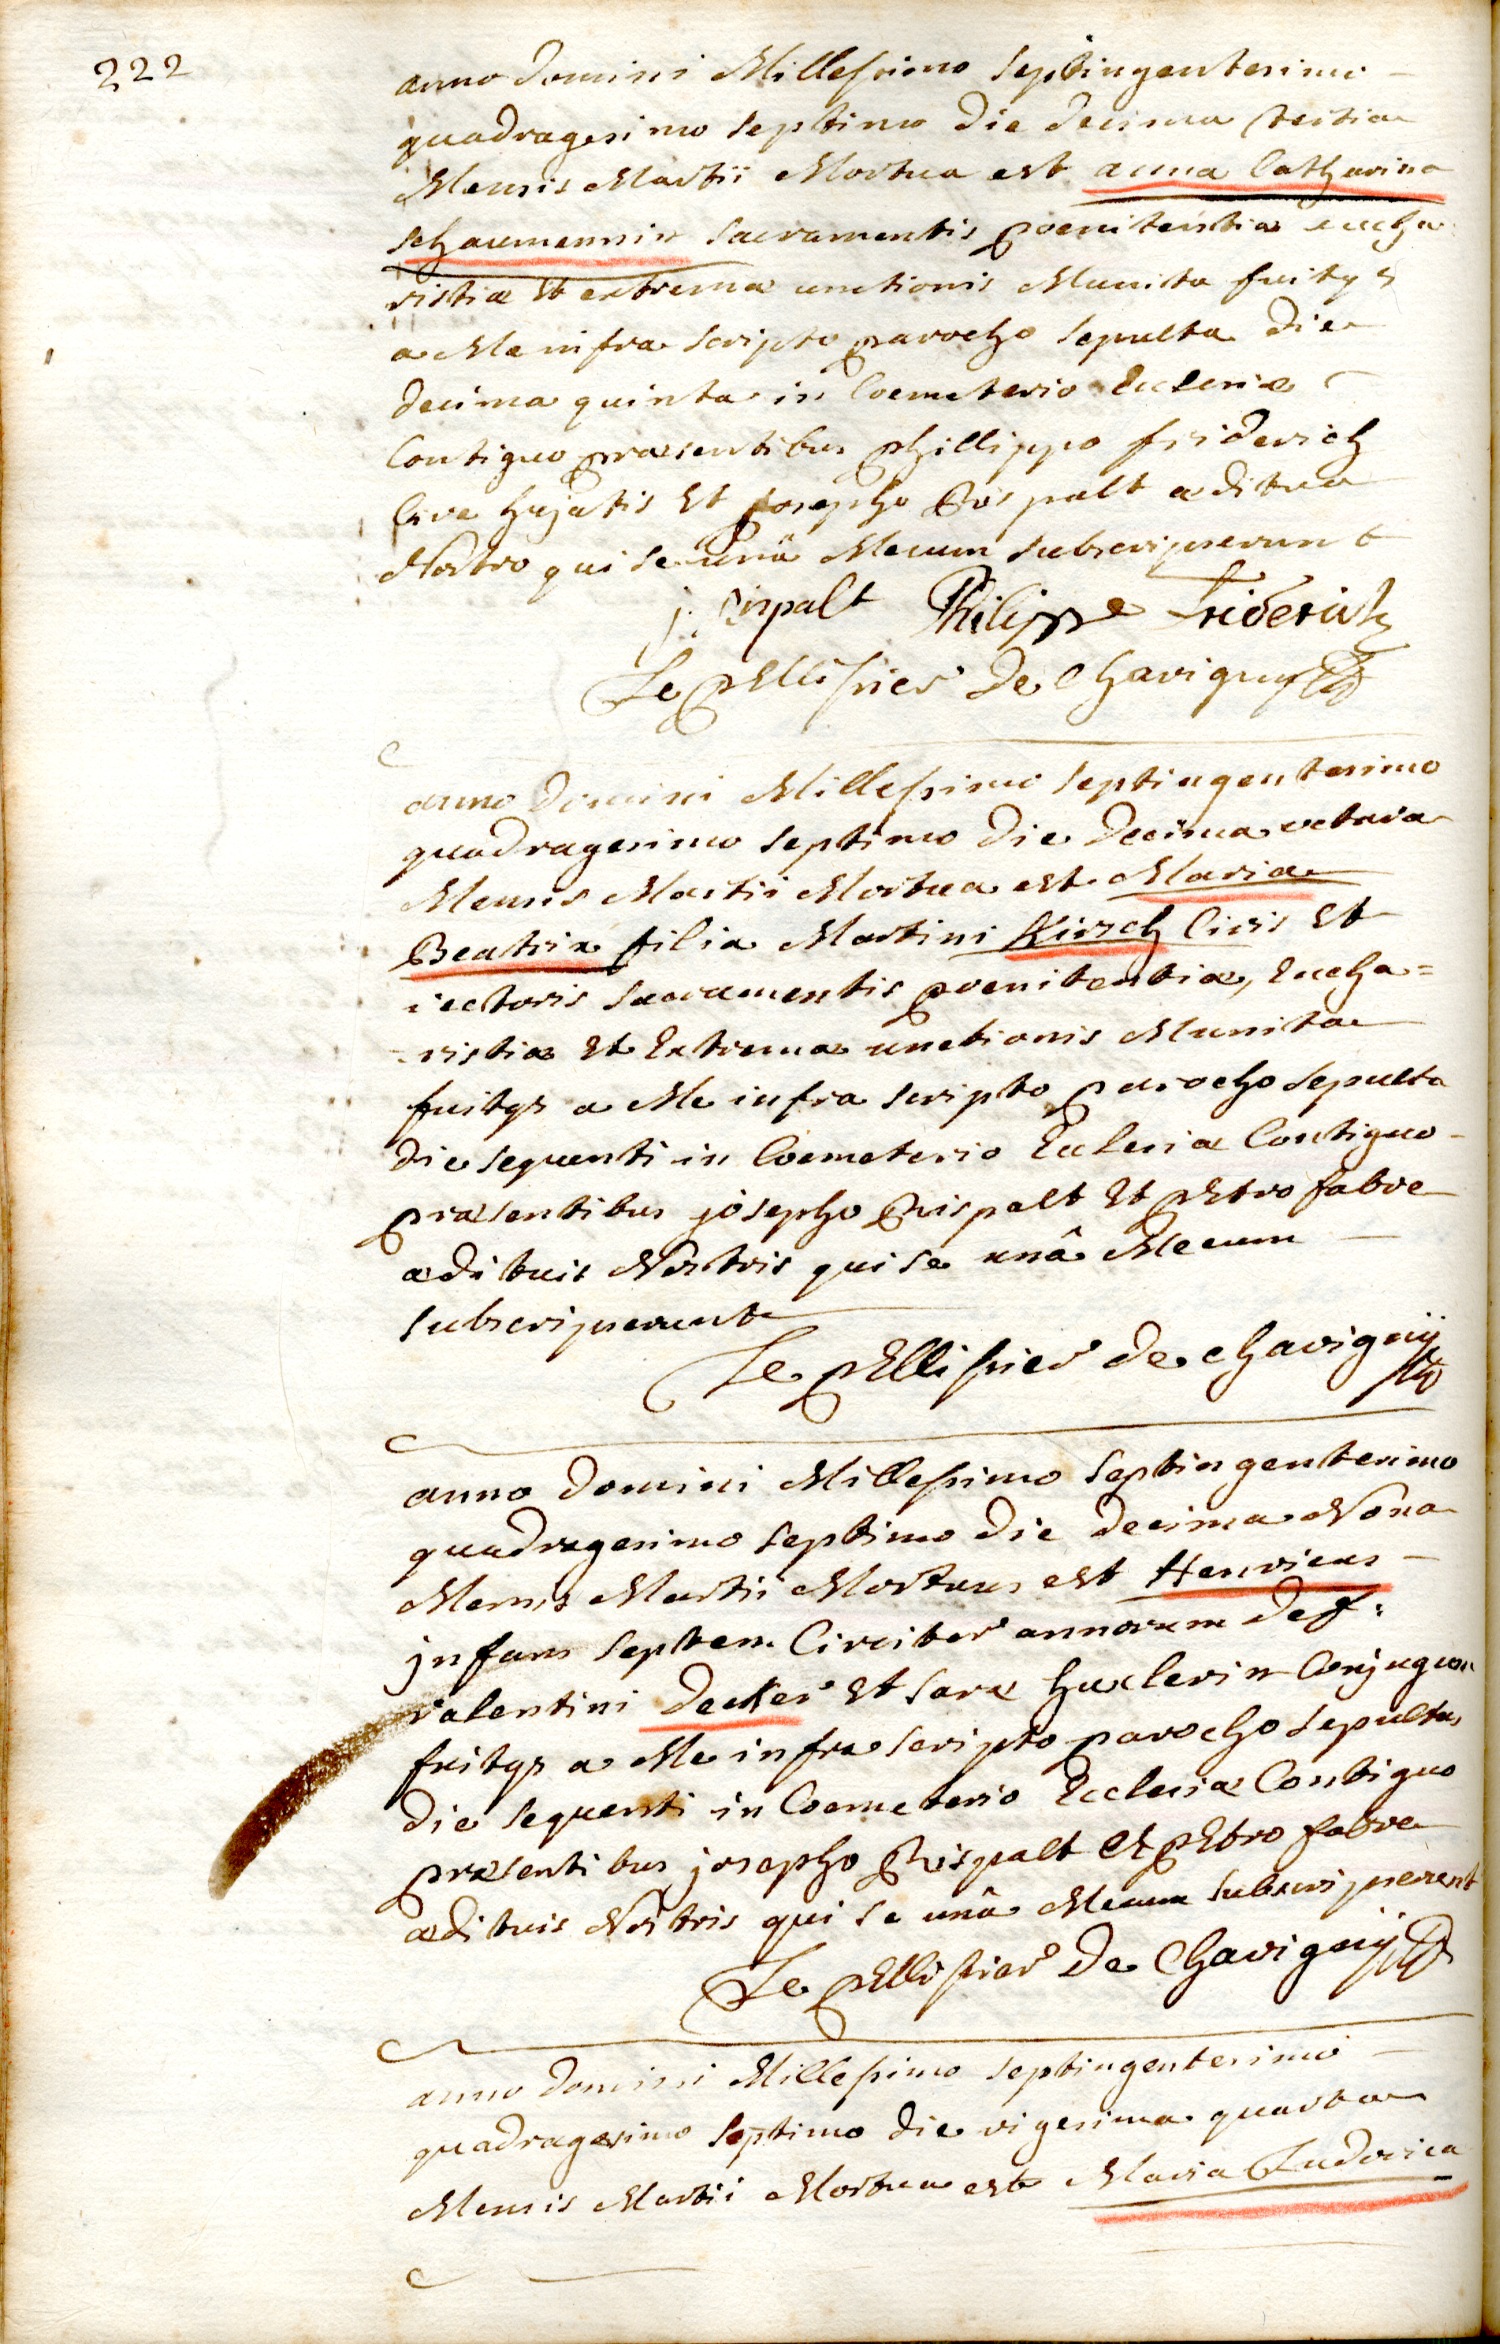 222
anno Domini Millesimo Septingentesimo
quadragesimo septimo die decima tertia
Mensis Martii Mortua est anna Catharina
schaumennin sacramentis poenitentiæ eucha
ristiæ et extremæ unctionis Munita fuitq3
a Me infra scripto parocho sepulta die
decima quinta in Coemeterio Ecclesiæ
Contiguo præsentibus phillippo friderich
Cive hujatis Et josepho Rispalt ædituo
Nostro qui se unâ Mecum subscripserunt
j. Rispalt Philippe Friderich
Le pEllissier de Chavigny
anno Domini Millesimo septingentesimo
quadragesimo septimo die decima octava
Mensis Martii Mortua est Maria
Beatrix filia Martini Kirsch Civis Et
sacramentis poenitentiæ, Eucha=
=ristiæ Et Extremæ unctionis Munita
fuitq3 a Me infra scripto parocho sepulta
die sequenti in Coemeterio Ecclesiæ Contiguo
præsentibus josepho Rispalt Et pEtro fabre
ædituis Nostris qui se unâ Mecum
subscripserunt
Le pEllissier de chavignÿ
anno Domini Millesimo septingentesimo
quadragesimo septimo die decima Nona
Mensis Martii Mortuus est Henricus
jnfans septem Circiter annorum def:
valentini decker Et saræ Conjugum
fuitq3 a Me infra scripto parocho sepultus
die sequenti in Coemeterio Ecclesiæ Contiguo
præsentibus josepho Rispalt Et pEtro fabre
ædituis Nostris qui se unâ Mecum subscripserunt
Le pEllissier de Chavignÿ
anno Domini Millesimo septingentesimo
quadragesimo septimo die vigesima quarta
Mensis Martii Mortua est Maria Ludovica